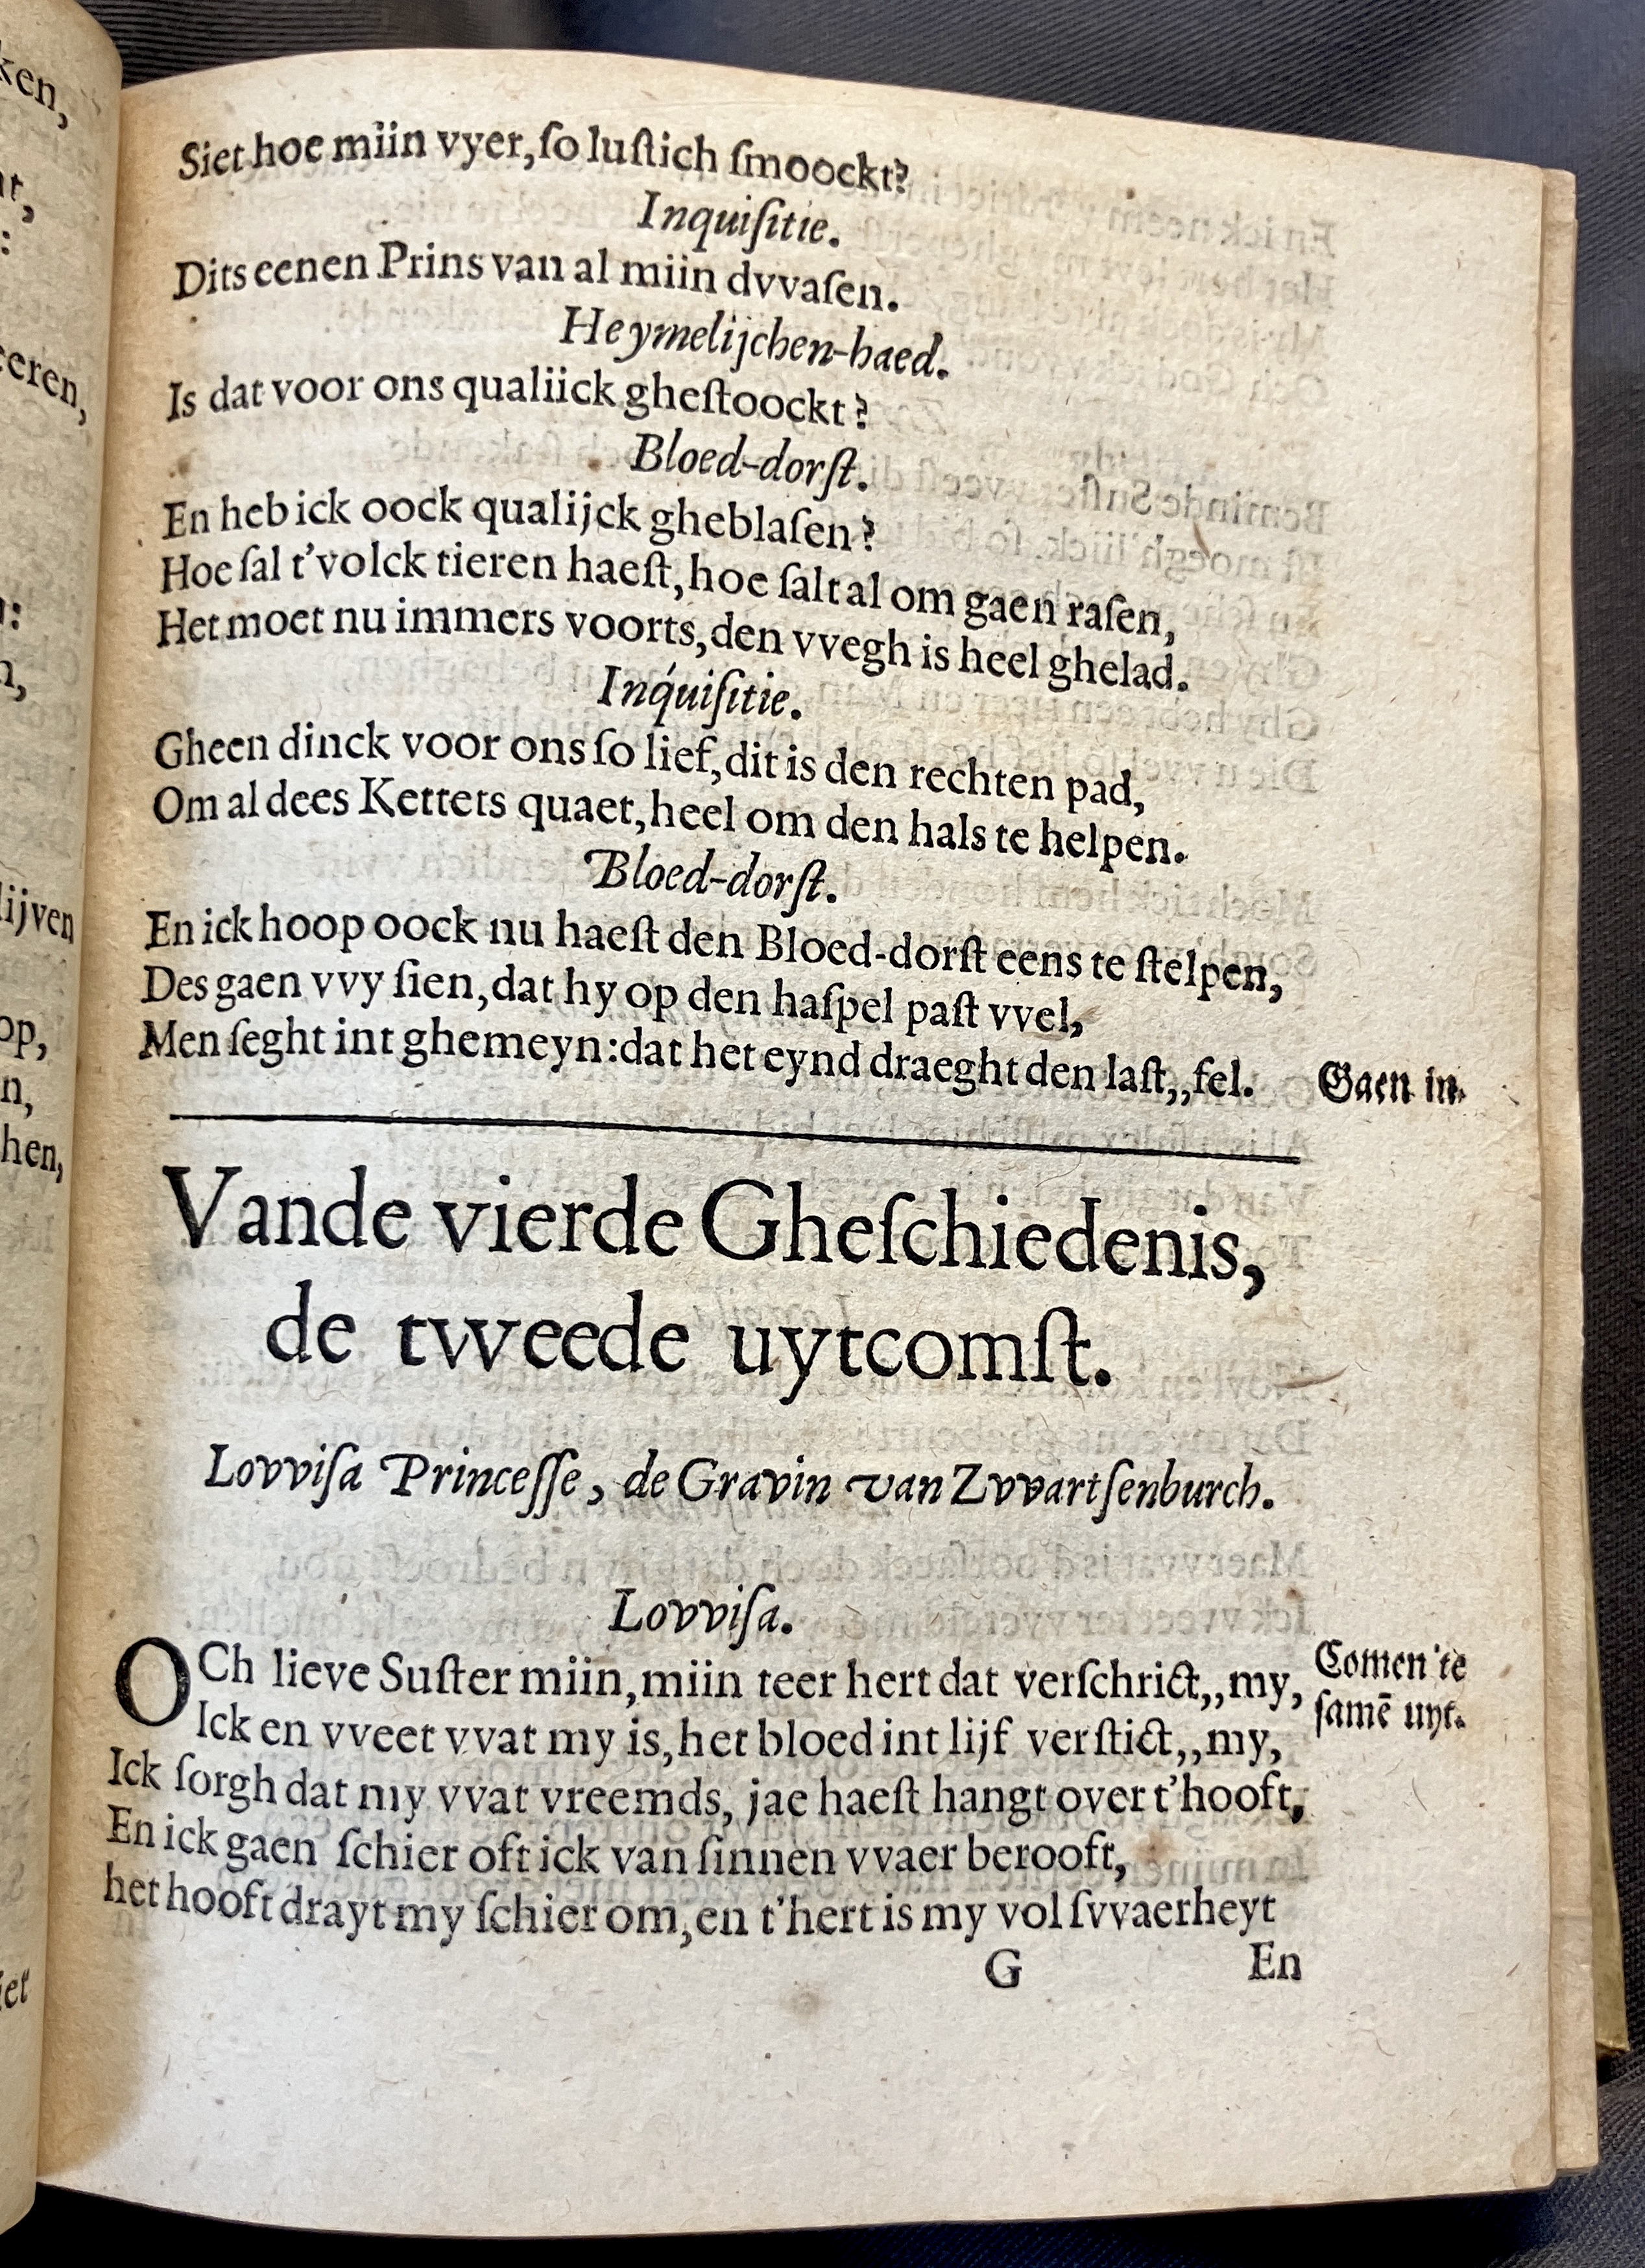 Siet hoe miin vyer, ſo luſtich ſmoockt?
Inquiſitie.
Dits eenen Prins van al miin dvvaſen.
Heymelijchen-haed.
Is dat voor ons qualiick gheſtoockt?
Bloed-dorſt.
En heb ick oock qualijck gheblaſen?
Hoe ſal t'volck tieren haeſt, hoe ſalt al om gaen raſen,
Het moet nu immers voorts, den vvegh is heel ghelad.
Inquiſitie.
Gheen dinck voor ons ſo lief, dit is den rechten pad,
Om al dees Ketters quaet, heel om den hals te helpen.
Bloed-dorſt.
En ick hoop oock nu haeſt den Bloed-dorſt eens te ſtelpen,
Des gaen vvy ſien, dat hy op den haſpel paſt vvel,
Men ſeght int ghemeyn: dat het eynd draeght den laſt,,fel. Gaen in.
Vande vierde Gheſchiedenis,
de tvveede uytcomſt.
Lovviſa Princeſſe, de Gravin van Zvvartſenburch.
Lovviſa.
OCh lieve Suſter miin, miin teer hert dat verſchrict,,my, Comen te
Ick en vveet vvat my is, het bloed int lijf verſtict,,my, ſamē uyt.
Ick ſorgh dat my vvat vreemds, jae haeſt hangt over t'hooft,
En ick gaen ſchier oft ick van ſinnen vvaer berooft,
het hooft drayt my ſchier om, en t'hert is my vol ſvvaerheyt
G En